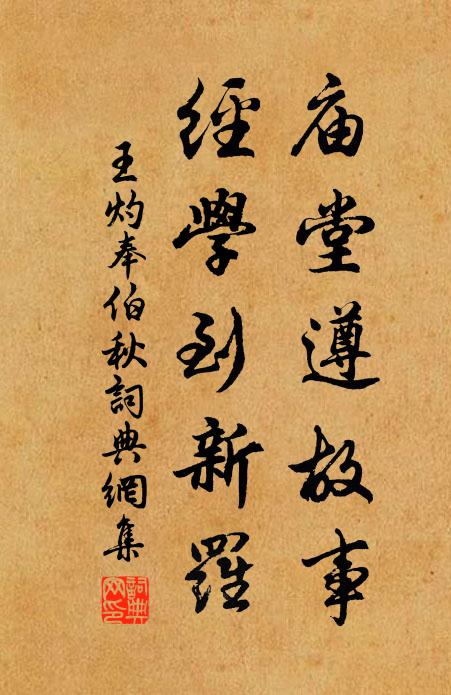 庙堂遵故事
經學到新羅
王灼奉伯秋詞典網集
詞典网印